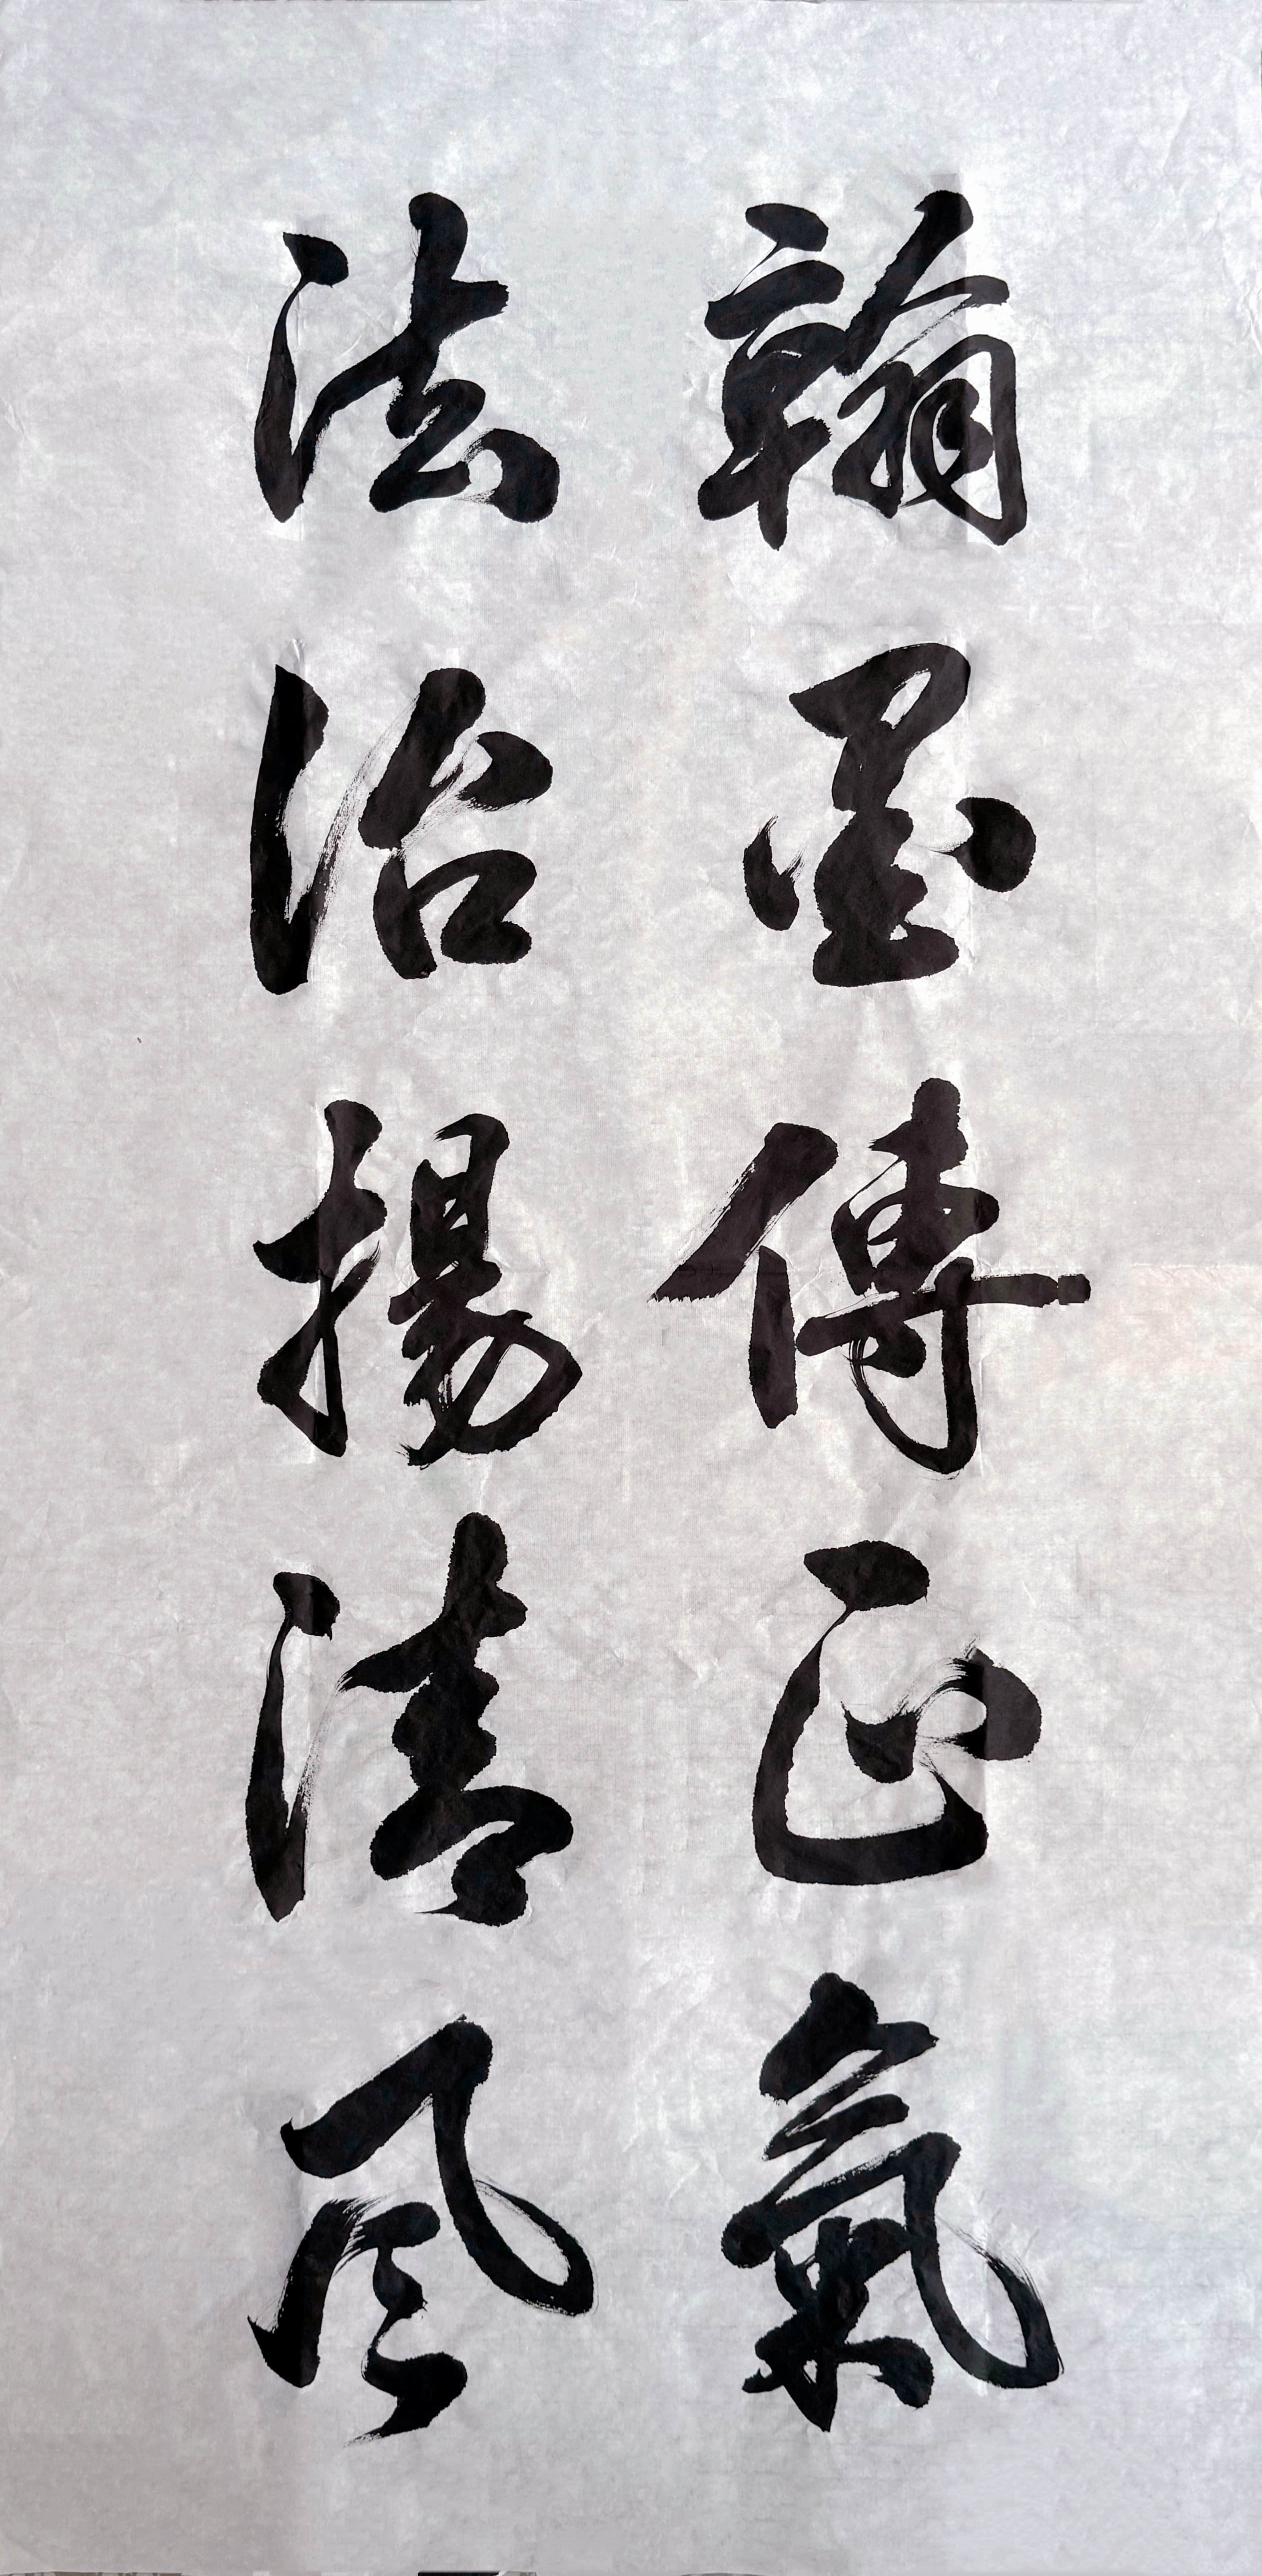 翰墨傳正氣
法治揚清風